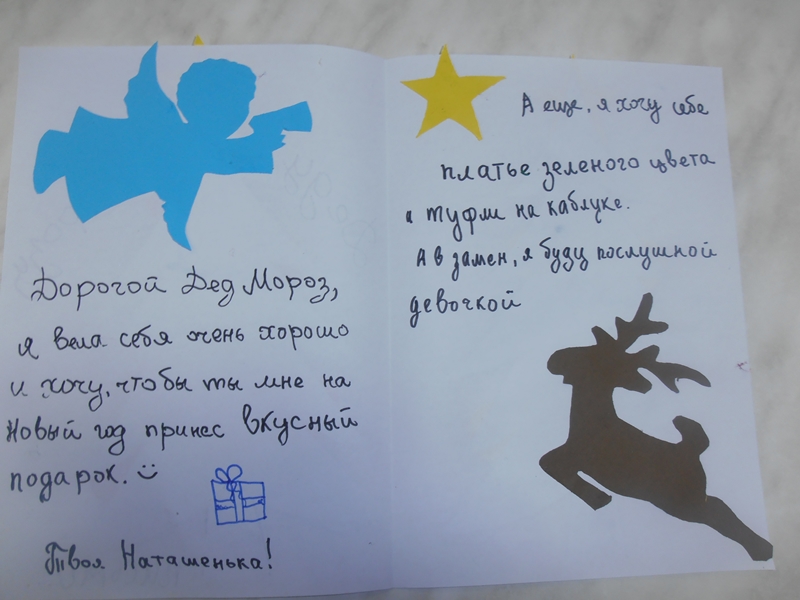 Дорогой Дед Мороз,
я вела себя очень хорошо
и хочу, чтобы ты мне на
Новый год принес вкусный
подарок.
Твоя Наташенька!
А еще, я хочу себе
платье зеленого цвета
и туфли на каблуке.
А в замен, я буду послушной
девочкой